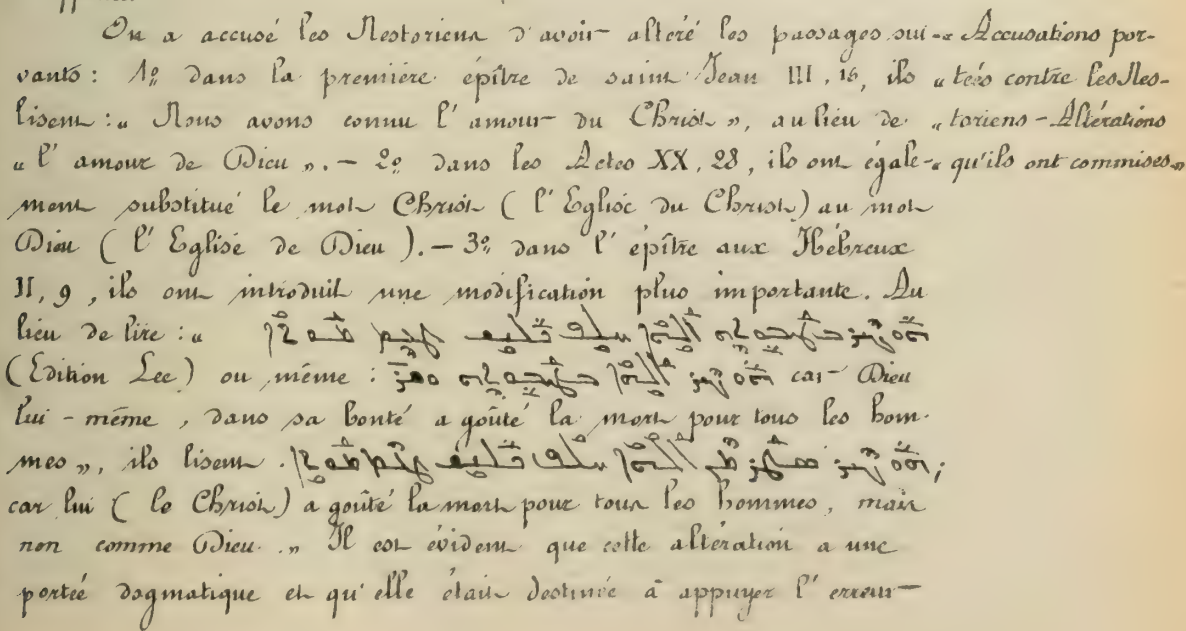 On a accusé les Nestoriens d'avoir altéré les passages sui-
vants : 1º dans la première épître de saint Jean III, 16, ils
lisent : « Nous avons connu l'amour du Christ », au lieu de
« l'amour de Dieu ». — 2º dans les Actes XX, 28, ils ont égale-
ment substitué le mot Christ ( l'Eglise du Christ ) au mot
Dieu ( l'Eglise de Dieu ). — 3º dans l'épître aux Hébreux
II, 9, ils ont introduit une modification plus importante. Au
lieu de lire : « ܗܘ ܓܝܪ ܒܛܝܒܘܬܗ ܐܠܗܐ ܚܠܦ ܟܠܢܫ ܛܥܡ ܡܘܬܐ
(Edition Lee) ou même : ܗܘ ܓܝܪ ܐܠܗܐ ܒܛܝܒܘܬܗ car Dieu
lui-même, dans sa bonté a goûté la mort pour tous les hom-
mes », ils lisent . ܗܘ ܓܝܪ ܣܛܪ ܡܢ ܐܠܗܐ ܚܠܦ ܟܠܢܫ ܛܥܡ ܡܘܬܐ;
car lui ( le Christ ) a goûté la mort pour tous les hommes, mais
non comme Dieu. » Il est évident que cette altération a une
porteé dogmatique et qu'elle était destinée à appuyer l'erreur
« Accusations por-
« teés contre les Nes-
« toriens - Altérations
« qu'ils ont commises »